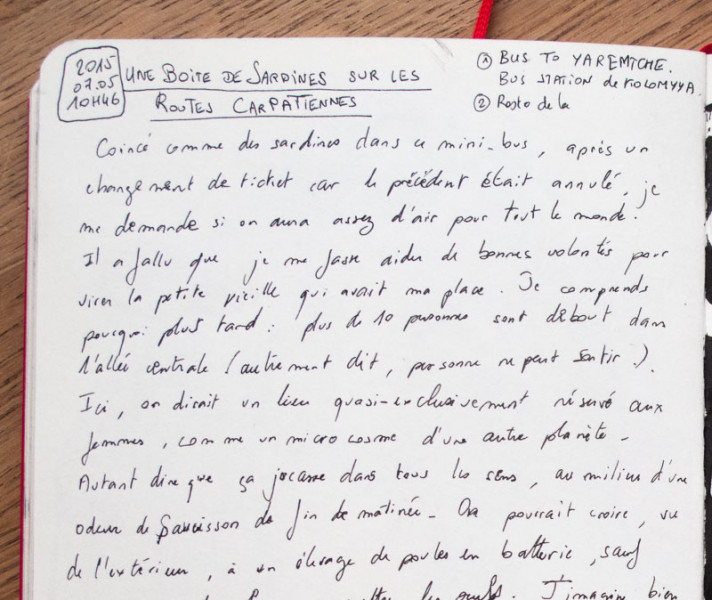 2015
07.05
10H46
UNE BOITE DE SARDINES SUR LES
ROUTES CARPATIENNES
① BUS TO YAREMTCHE.
BUS STATION de KOLOMYYA
② Resto de la
Coincé comme des sardines dans ce mini-bus, après un
changement de ticket car le précédent était annulé, je
me demande si on aura assez d'air pour tout le monde.
Il a fallu que je me fasse aider de bonnes volontés pour
virer la petite vieille qui avait ma place. Je comprends
pourquoi plus tard : plus de 10 personnes sont debout dans
l'allée centrale (autrement dit, personne ne peut sortir).
Ici, on dirait un lieu quasi-exclusivement réservé aux
femmes, comme un microcosme d'une autre planète -
Autant dire que ça jacasse dans tous les sens, au milieu d'une
odeur de saucisson de fin de matinée - On pourrait croire, vu
de l'extérieur, à un élevage de poules en batterie, sauf
les oeufs. J'imagine bien